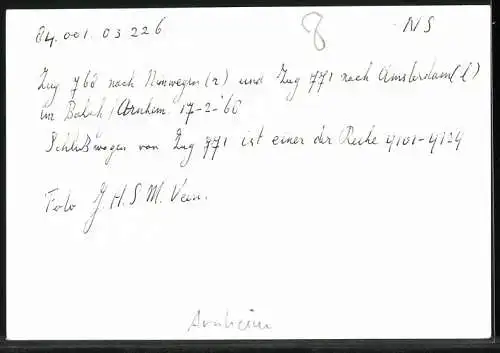 84.001.03226
8
NS
Zug 768 nach Nimwegen (r) und Zug 771 nach Amsterdam (l)
im Bahnh. Arnheim. 17-2-'60
Schlußwagen von Zug 771 ist einer der Reihe 4101-4124
Foto J.H.S.M. Veen.
Arnheim